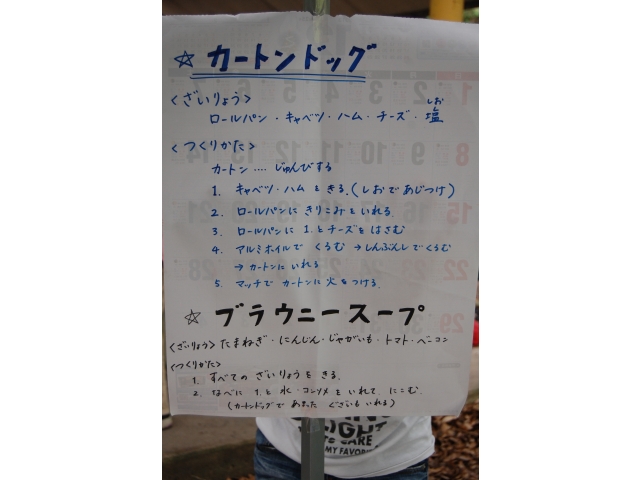 ☆ カートンドッグ
<ざいりょう>
ロールパン・キャベツ・ハム・チーズ・塩
しお
<つくりかた>
カートン‥‥じゅんびする
1. キャベツ・ハムをきる。(しおであじつけ)
2. ロールパンにきりこみをいれる。
3. ロールパンに 1.とチーズをはさむ
4. アルミホイルで くるむ →しんぶんしでくるむ
→カートンにいれる
5. マッチで カートンに火をつける。
☆ ブラウニースープ
<ざいりょう> たまねぎ・にんじん・じゃがいも・トマト・ベーコン
<つくりかた>
1. すべての ざいりょうを きる。
2. なべに 1.と 水・コンソメ をいれて、にこむ。
(カートンドッグで あまった ぐざいもいれる)
LIGHT
CARE
MY FAVORI